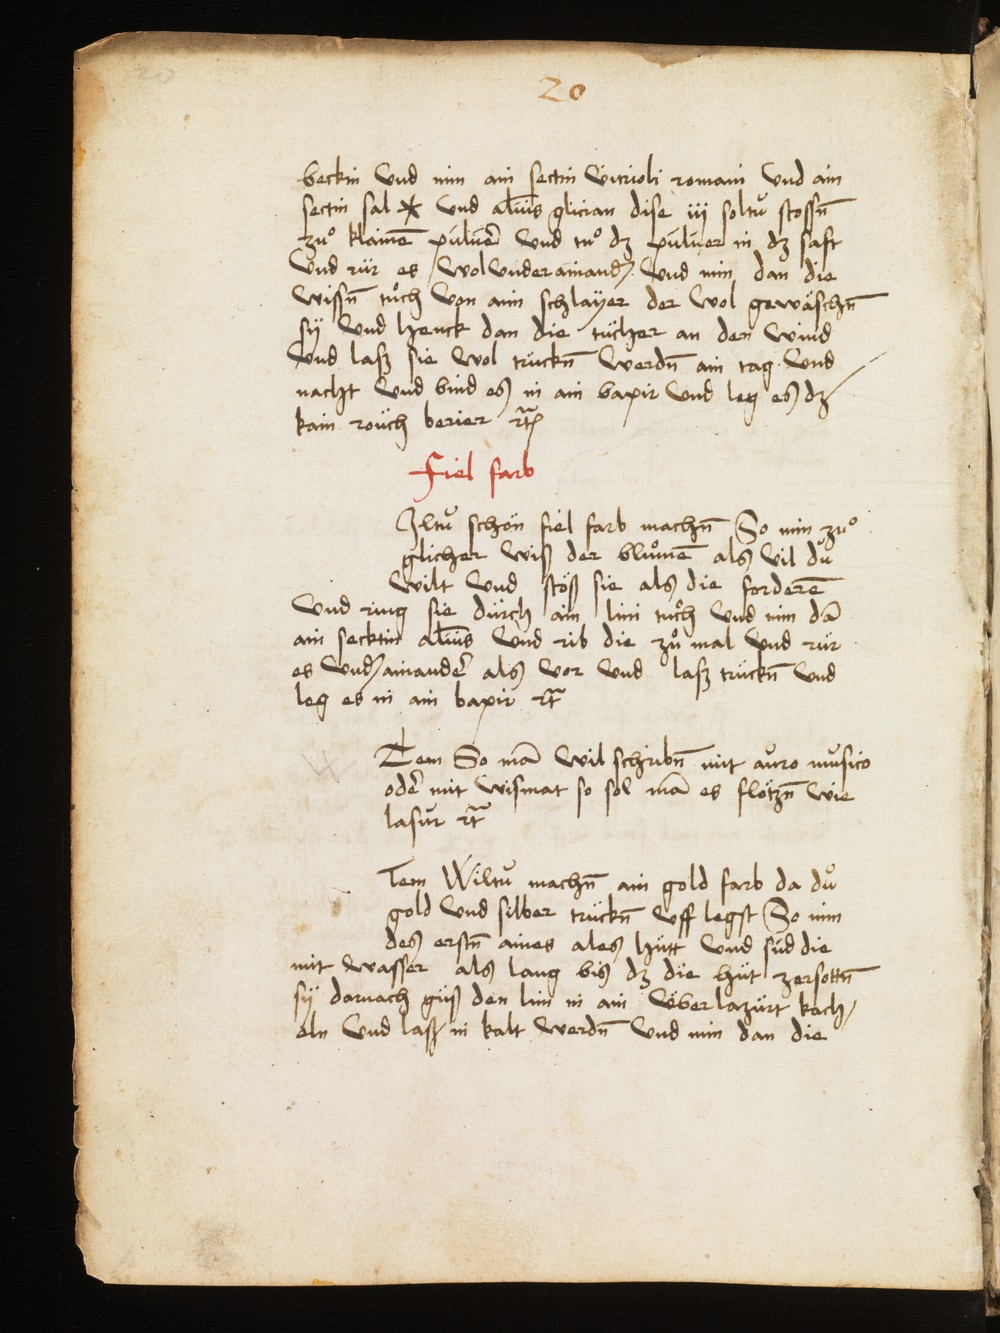 20
beckin vnd nim ain sectin vitrioli romani vnd ain
sectin sal * vnd alu̅is glician dise iij soltu̍ stossn̄
zuͦ klainē pulūer̄ vnd tuͦ dz puluer in dz saft
vnd rür es wol vnder ainand vnd nim dan die
wissn̄ tuͦch von aim schlayer der wol gewäschn̄
sÿ vnd henck dan die tücher an den wind
vnd lasz sie wol truckn̄ werdn̄ ain tag vnd
nacht vnd bind es in ain bapir vnd leg es dz
kain rouch berier rc̄
Fiel farb
Iltu schön fiel farb machn̄ So nim zuͦ
glicher wiß der bluͦmē als vil du
wilt vnd stöß sie als die forderē
vnd ring sie durch ain lini tuͦch vnd nim dā
ain secktin alu̅is vnd rib die zuͦ mal vnd rür
es vnd ainander̄ als vor vnd lasz truckn̄ vnd
leg es in ain bapir rc̄
Tem So mā wil schribn̄ mit auro musico
oder̄ mit wismat so sol mā es flötzn̄ wie
lasur rc̄
Tem Wiltu machn̄ ain gold farb da du
gold vnd silber truckn̄ vff legst So nim
des erstn̄ aines ales hütt vnd süd die
mit wasser als lang bis dz die hüt zersottn̄
sÿ darnach güß den lim in ain vber lazürt kach/
eln vnd lasz in kalt werdn̄ vnd nim dan die